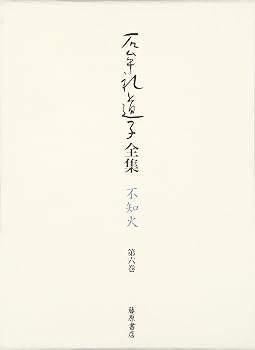 石牟礼道子
全集
不知火
第六巻
藤原書店